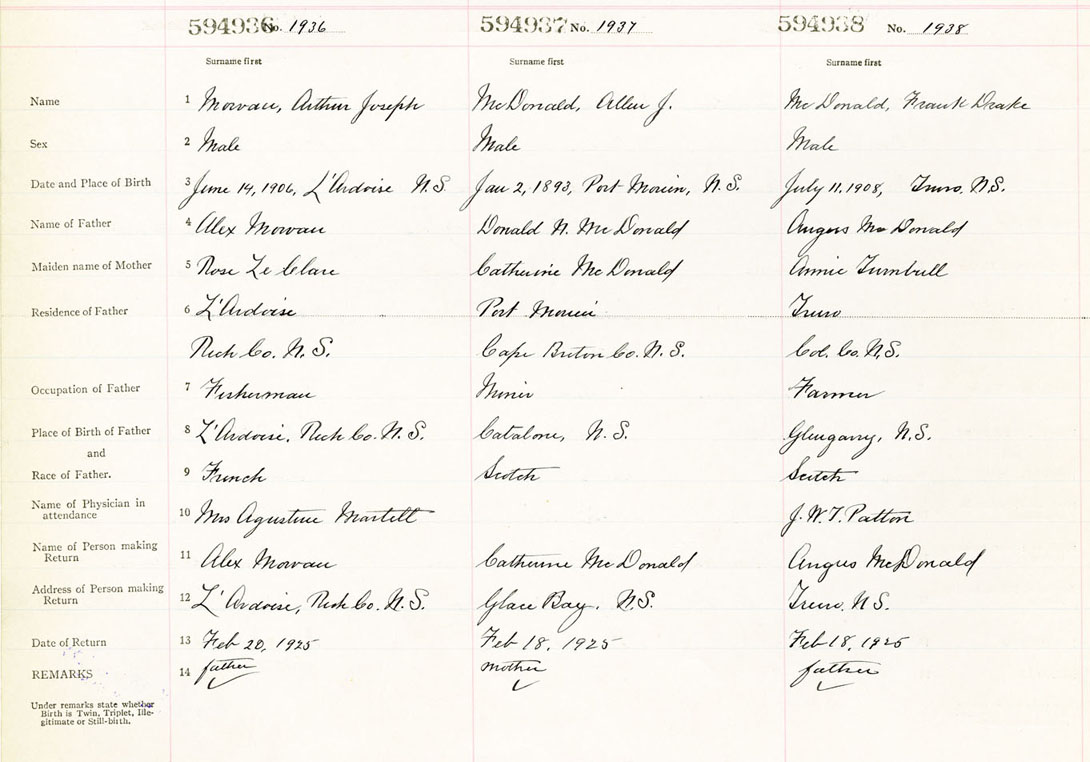 594936 No. 1936 594937 No. 1937 594938 No. 1938
Surname first Surname first Surname first
Name 1 Mowau, Arthur Joseph McDonald, Allen J. McDonald, Frank Drake
Sex 2 Male Male Male
Date and Place of Birth 3 June 14, 1906, L'Ardoise N.S. Jan 2, 1893, Port Morien, N.S. July 11, 1908, Truro, N.S.
Name of Father 4 Alex Mowau Donald N. McDonald Angus McDonald
Maiden name of Mother 5 Rose Le Clare Catherine McDonald Annie Turnbull
Residence of Father 6 L'Ardoise Port Morien Truro
Rich Co. N.S. Cape Breton Co. N.S. Col. Co. N.S.
Occupation of Father 7 Fisherman Miner Farmer
Place of Birth of Father 8 L'Ardoise, Rich Co. N.S. Catalone, N.S. Glengarry, N.S.
and
Race of Father. 9 French Scotch Scotch
Name of Physician in
attendance 10 Mrs Agustine Martell J. W. T. Patton
Name of Person making
Return 11 Alex Mowau Catherine McDonald Angus McDonald
Address of Person making
Return 12 L'Ardoise, Rich Co. N.S. Glace Bay, N.S. Truro, N.S.
Date of Return 13 Feb 20, 1925 Feb 18, 1925 Feb 18, 1925
REMARKS 14 father mother father
Under remarks state whether
Birth is Twin, Triplet, Ille-
gitimate or Still-birth.